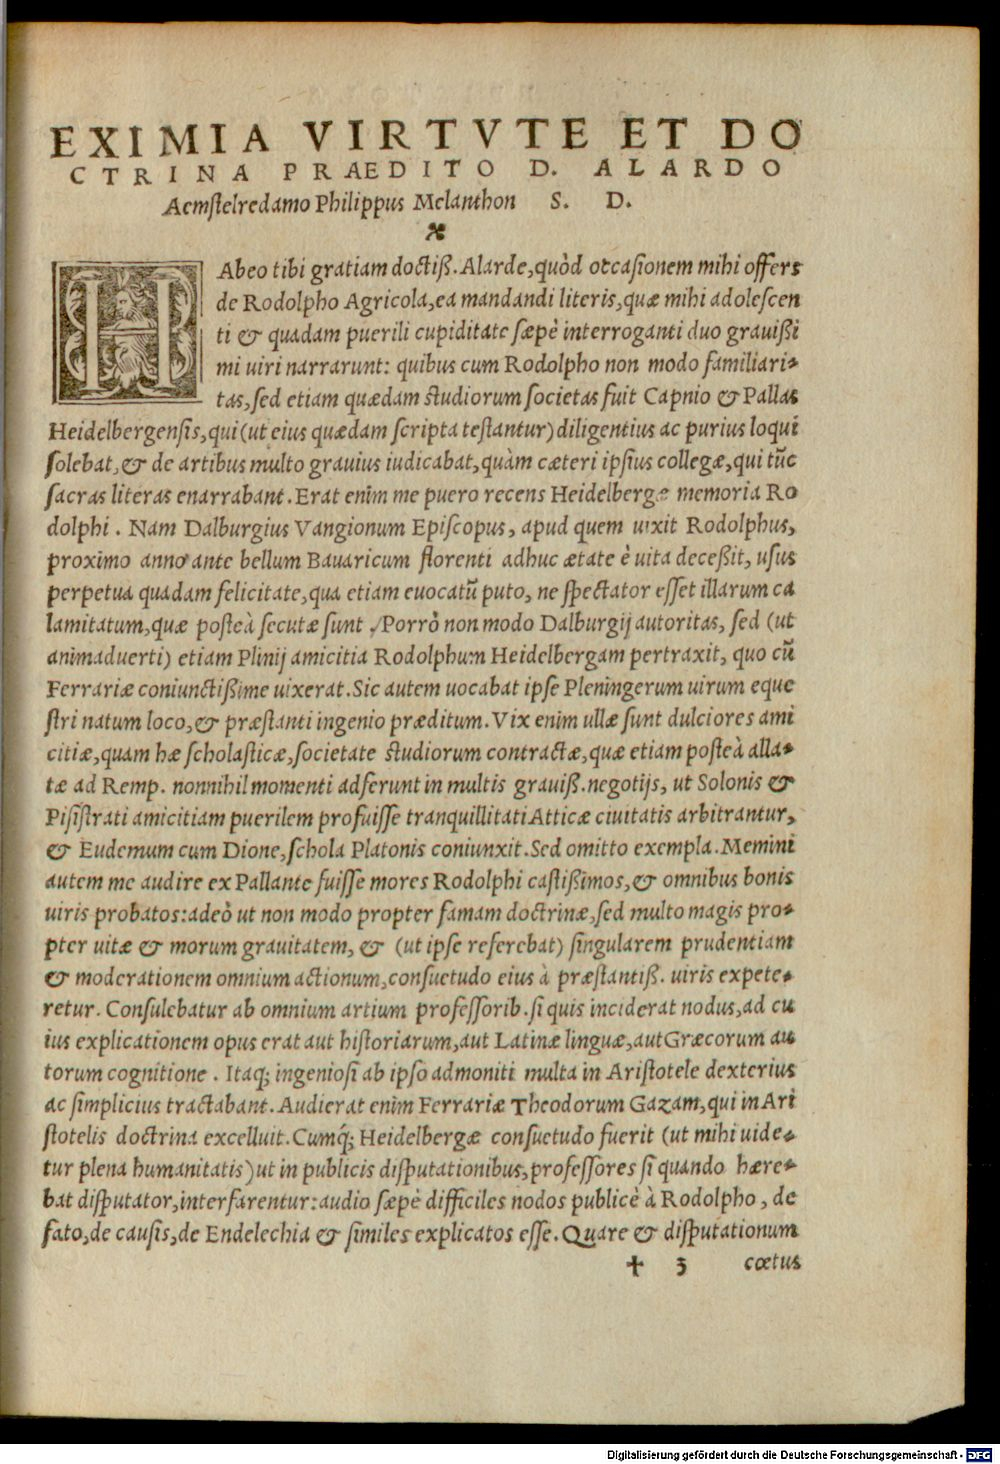 EXIMIA VIRTVTE ET DO
CTRINA PRAEDITO D. ALARDO
Aemstelredamo Philippus Melanthon S. D.
HAbeo tibi gratiam doctiß. Alarde, quòd occasionem mihi offers
de Rodolpho Agricola, ea mandandi literis, quæ mihi adolescen
ti & quadam puerili cupiditate sæpè interroganti duo grauißi
mi uiri narrarunt: quibus cum Rodolpho non modo familiari-
tas, sed etiam quædam studiorum societas fuit Capnio & Pallas
Heidelbergensis, qui (ut eius quædam scripta testantur) diligentius ac purius loqui
solebat, & de artibus multo grauius iudicabat, quàm cæteri ipsius collegæ, qui tũc
sacras literas enarrabant. Erat enim me puero recens Heidelbergæ memoria Ro
dolphi. Nam Dalburgius Vangionum Episcopus, apud quem uixit Rodolphus,
proximo anno ante bellum Bauaricum florenti adhuc ætate è uita deceßit, usus
perpetua quadam felicitate, qua etiam euocatũ puto, ne spectator esset illarum ca
lamitatum, quæ posteà secutæ sunt. Porrò non modo Dalburgij autoritas, sed (ut
animaduerti) etiam Plinij amicitia Rodolphum Heidelbergam pertraxit, quo cũ
Ferrariæ coniunctißime uixerat. Sic autem uocabat ipse Pleningerum uirum eque
stri natum loco, & præstanti ingenio præditum. Vix enim ullæ sunt dulciores ami
citiæ, quam hæ scholasticæ, societate studiorum contractæ, quæ etiam posteà alla-
tæ ad Remp. nonnihil momenti adferunt in multis grauiß. negotijs, ut Solonis &
Pisistrati amicitiam puerilem profuisse tranquillitati Atticæ ciuitatis arbitrantur,
& Eudemum cum Dione, schola Platonis coniunxit. Sed omitto exempla. Memini
autem me audire ex Pallante fuisse mores Rodolphi castißimos, & omnibus bonis
uiris probatos: adeò ut non modo propter famam doctrinæ, sed multo magis pro-
pter uitæ & morum grauitatem, & (ut ipse referebat) singularem prudentiam
& moderationem omnium actionum, consuetudo eius à præstantiß. uiris expete-
retur. Consulebatur ab omnium artium professorib. si quis inciderat nodus, ad cu
ius explicationem opus erat aut historiarum, aut Latinæ linguæ, aut Græcorum au
torum cognitione. Itaq; ingeniosi ab ipso admoniti multa in Aristotele dexterius
ac simplicius tractabant. Audierat enim Ferrariæ Theodorum Gazam, qui in Ari
stotelis doctrina excelluit. Cumq́; Heidelbergæ consuetudo fuerit (ut mihi uide-
tur plena humanitatis) ut in publicis disputationibus, professores si quando hære-
bat disputator, interfarentur: audio sæpè difficiles nodos publicè à Rodolpho, de
fato, de causis, de Endelechia & similes explicatos esse. Quare & disputationum
✝ 3 cœtus
Digitalisierung gefördert durch die Deutsche Forschungsgemeinschaft - DFG